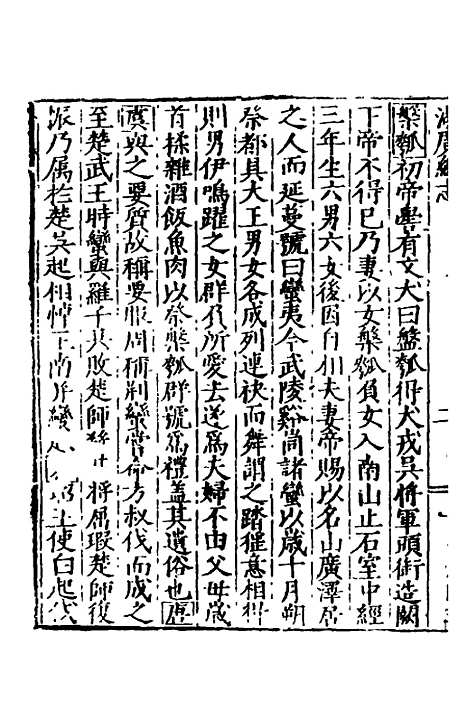 湖廣總志
槃瓠初帝嚳有文犬曰盤瓠得犬戎吳將軍頭銜造闕
下帝不得已乃妻以女槃瓠負女入南山止石室中經
三年生六男六女後因自相夫妻帝賜以名山廣澤居
之人而延蔓號曰蠻夷今武陵谿峝諸蠻以歲十月朔
祭都貝大王男女各成列連袂而舞謂之踏猺意相得
則男伊鳴躍之女群負所愛去遂爲夫婦不由父母歲
首揉雜酒飯魚肉以祭槃瓠群號爲禮蓋其遺俗也虞
與之要質故稱要服周稱荆蠻嘗命方叔伐而成之
至楚武王時蠻與羅子共敗楚師 將屈瑕楚師後
派乃属於楚吳起相悼王南并蠻 使白起伐